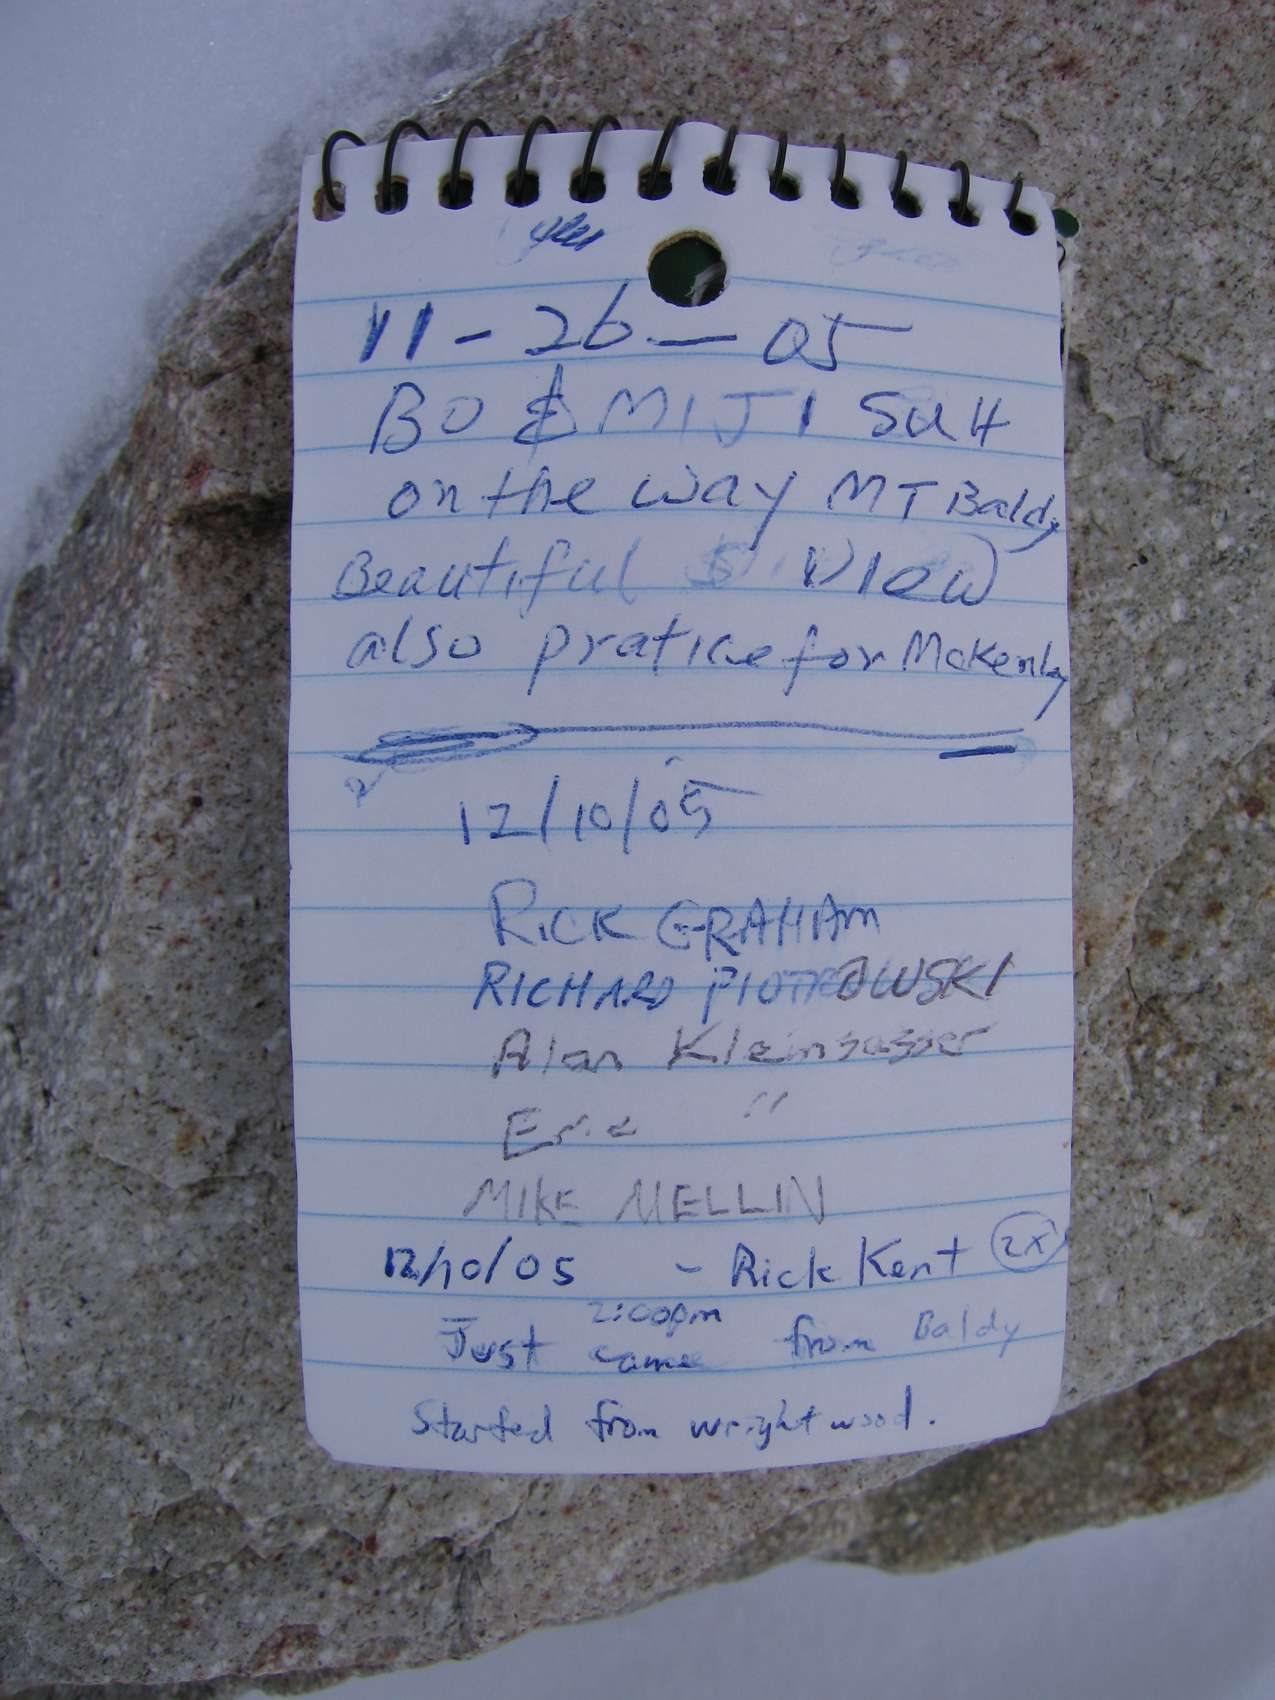 11-26-05
BO & MIJI SUH
on the way MT Baldy
Beautiful view
also pratice for Mckenly
12/10/05
RICK GRAHAM
RICHARD PIOTROWSKI
Alan Kleinsasser
"
MIKE MELLIN
12/10/05 - Rick Kent 2X
2:00pm
Just came from Baldy
Started from wrightwood.